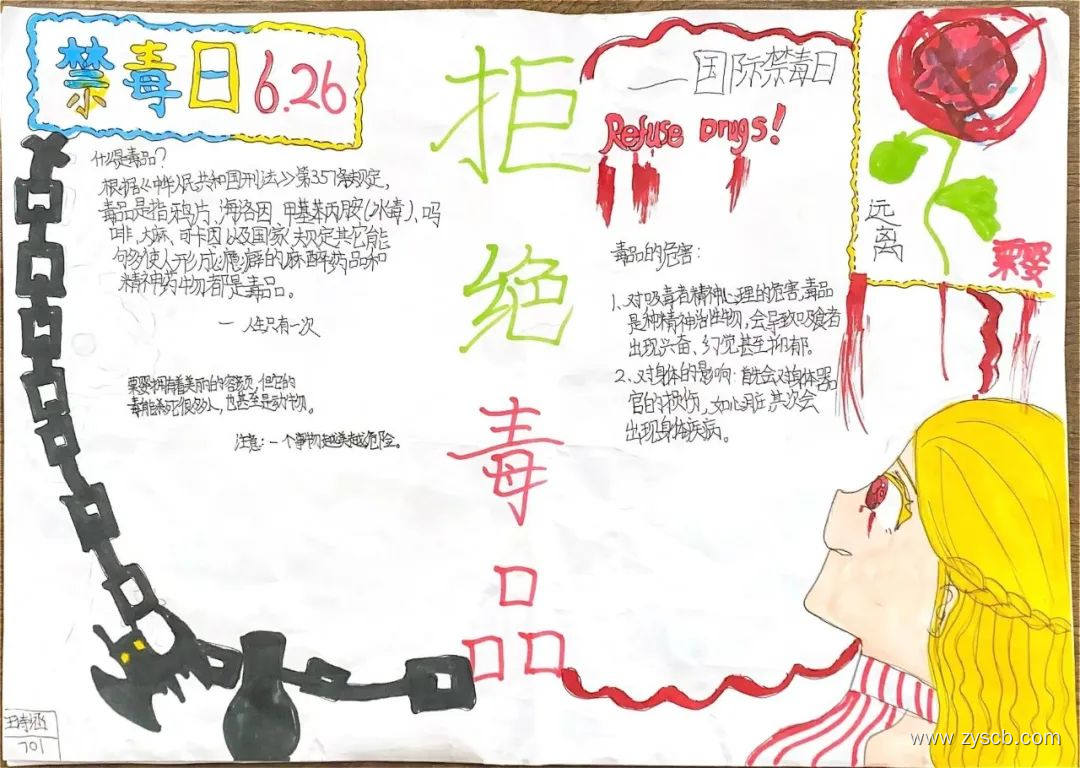 禁毒日 6.26
什么是毒品?
根据《中华人民共和国刑法》第357条规定,
毒品是指鸦片、海洛因、甲基苯丙胺(冰毒)、吗
啡、大麻、可卡因以及国家规定其它能
够使人形成瘾癖的麻醉药品和
精神药物都是毒品。
一 人生只有一次
罂粟拥有着美丽的容颜,但它的
毒能杀死很多人,也甚至是动物。
注意:一个事物越美越危险。
拒
绝
毒
品
—国际禁毒日
Refuse Drugs!
毒品的危害:
1、对吸毒者精神心理的危害,毒品
是种精神活性物,会导致吸食者
出现兴奋、幻觉甚至抑郁。
2、对身体的影响:首先会对身体器
官的损伤,如心脏,其次会
出现身体疾病。
远
离
粟婴
701
www.zyscb.com